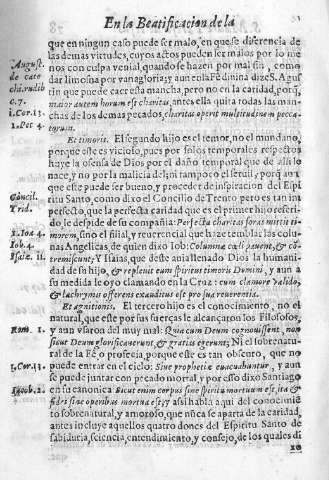 En la Beatificacion de la
que en ningun caso puede ser malo, en que se diferencia de
las demas virtudes, cuyos actos pueden ser malos por lo me
nos con culpa venial, quando se hazen por mal fin, como
dar limosna por vanagloria; y aun con la Fè dizia S. Agus
tin que puede caer esta mancha, pero no en la caridad, porq̃,
maior autem horum est charitas, antes ella quita todas las man
chas de los demas pecados, charitas operit multitudinem pecca
torum.
August.
de cate
chi. rudib
c. 7.
1. Cor. 13.
1. Pet. 4.
Et timoris. El segundo hijo es el temor, no el mundano,
porque este es vicioso, pues por solos temporales respectos
haye la ofensa de Dios por el daño temporal que de alli lo
nace, y no por la malicia del, ni tampoco el seruil, porq̃ aun
que este puede ser bueno, y proceder de inspiracion del Espi
ritu Santo, como dixo el Concilio de Trento pero es tan im
perfecto, que la perfecta caridad que es el primer hijo referi-
do le despide de su compañia: Perfecta charitas foras mittit ti-
morem, sino el filial, y reuerencial que haze temblar las colun
nas Angelicas, de quien dixo Iob: Columnæ cœli pauent, & cō
tremiscunt; Y Isaias, que deste auia llenado Dios la humani
dad de su hijo, & repleuit eum spiritus timoris Domini, y aun a
su medida le oyo clamando en la Cruz: cum clamore valido,
& lachrymis offerens exauditus est pro sua reuerentia.
Concil.
Trid.
1. Ioa. 4.
Iob. 4.
Isaiæ. 11.
Et agnitionis. El tercero hijo es el conocimiento, no el
natural, que este por sus fuerças le alcançaron los Filosofos,
y aun vsaron del muy mal: Quia cum Deum cognouissent, non
sicut Deum glorificauerunt, & gratias egerunt; Ni el sobrenatu-
ral de la Fè, o profecia porque este es tan obscuro, que no
puede entrar en el cielo: Siue prophetiæ euacuabuntur, y aun
se puede juntar con pecado mortal, y por esso dixo Santiago
en su canonica Sicut enim corpus sine spiritu mortuum est, ita &
fides sine operibus mortua est; y assi habla aqui del conocimiẽ
to sobrenatural, y amoroso, que nũca se aparta de la caridad,
antes incluye aquellos quatro dones del Espiritu Santo de
sabiduria, sciencia, entendimiento, y consejo, de los quales di
Rom. 1.
1. Cor. 13.
Iacob. 2.
xo